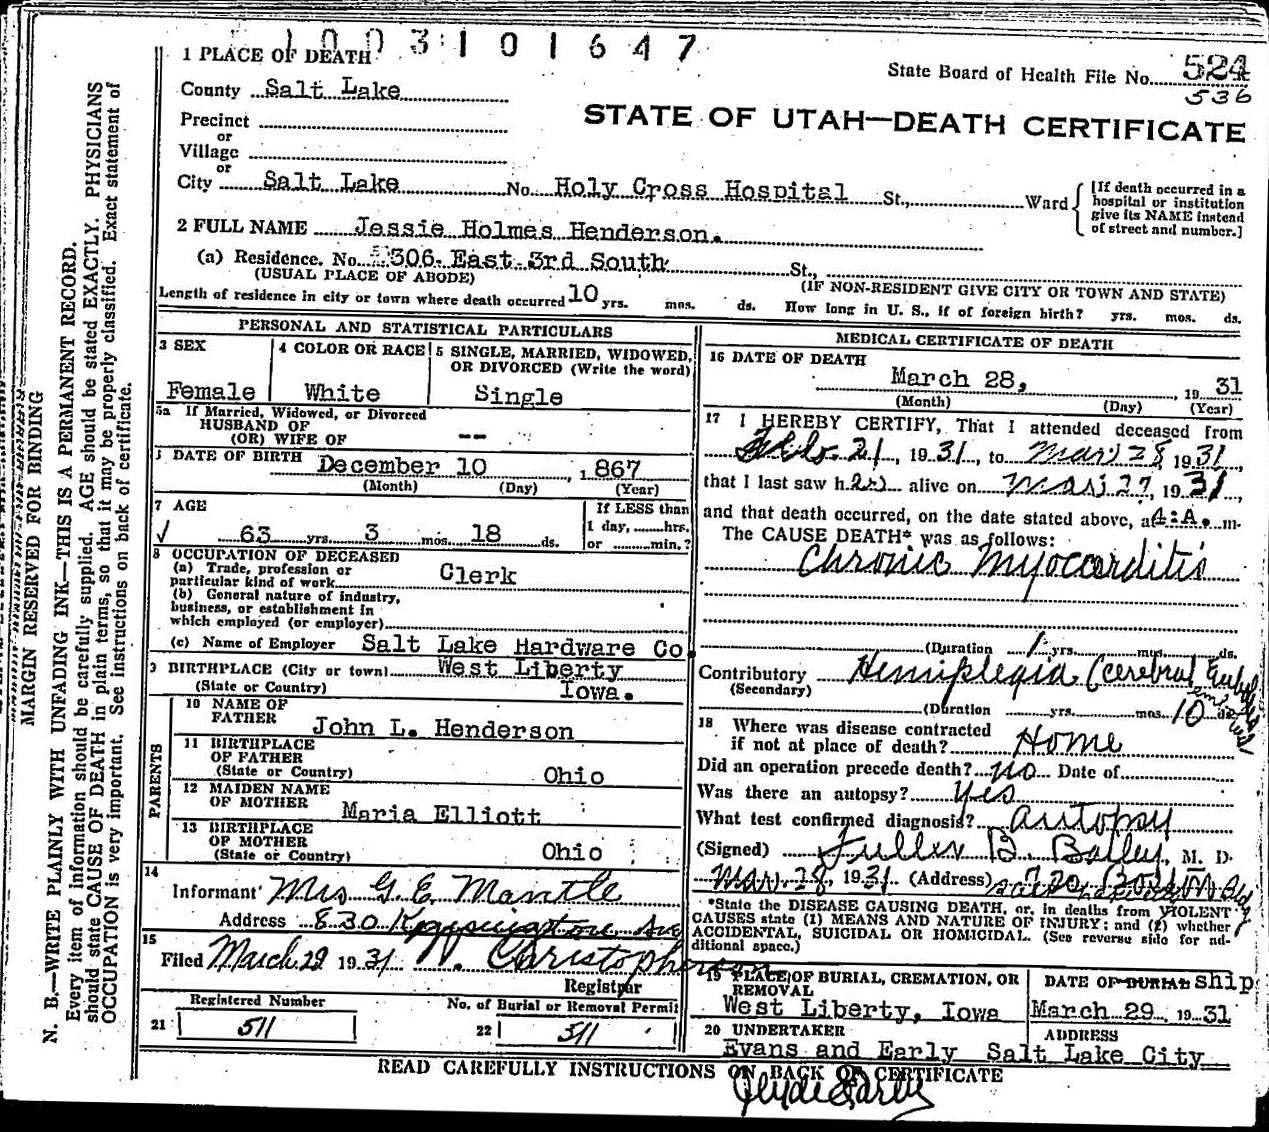 1003101647
1 PLACE OF DEATH
State Board of Health File No. 524
536
County Salt Lake
STATE OF UTAH—DEATH CERTIFICATE
Precinct
or
Village
or
City Salt Lake No. Holy Cross Hospital St., Ward
[If death occurred in a hospital or institution give its NAME instead of street and number.]
2 FULL NAME Jessie Holmes Henderson.
(a) Residence. No. 306 East 3rd South St.,
(USUAL PLACE OF ABODE) (IF NON-RESIDENT GIVE CITY OR TOWN AND STATE)
Length of residence in city or town where death occurred 10 yrs. mos. ds. How long in U. S., if of foreign birth? yrs. mos. ds.
PERSONAL AND STATISTICAL PARTICULARS
3 SEX
Female
4 COLOR OR RACE
White
5 SINGLE, MARRIED, WIDOWED,
OR DIVORCED (Write the word)
Single
5a If Married, Widowed, or Divorced
HUSBAND OF
(OR) WIFE OF --
DATE OF BIRTH December 10, 1867
(Month) (Day) (Year)
7 AGE
√ 63 yrs. 3 mos. 18 ds.
If LESS than
1 day, hrs.
or min.?
8 OCCUPATION OF DECEASED
(a) Trade, profession or
particular kind of work Clerk
(b) General nature of industry,
business, or establishment in
which employed (or employer)
(c) Name of Employer Salt Lake Hardware Co.
9 BIRTHPLACE (City or town) West Liberty
(State or Country) Iowa.
PARENTS
10 NAME OF
FATHER John L. Henderson
11 BIRTHPLACE
OF FATHER
(State or Country) Ohio
12 MAIDEN NAME
OF MOTHER Maria Elliott
13 BIRTHPLACE
OF MOTHER
(State or Country) Ohio
14
Informant Mrs G. E. Mantle
Address 830 Kensington Ave
15
Filed March 29 1931 Christopherson
Registrar
Registered Number
21 511
No. of Burial or Removal Permit
22 511
MEDICAL CERTIFICATE OF DEATH
16 DATE OF DEATH
March 28, 19 31
(Month) (Day) (Year)
17 I HEREBY CERTIFY, That I attended deceased from
Feb. 21, 19 31, to Mar 28 19 31,
that I last saw her alive on Mar 27, 19 31,
and that death occurred, on the date stated above, at 4:A. m.
The CAUSE DEATH* was as follows:
Chronic Myocarditis
(Duration 1 yrs. mos. ds.
Contributory Hemiplegia (cerebral
(Secondary)
(Duration yrs. mos. 10 ds.
18 Where was disease contracted
if not at place of death? Home
Did an operation precede death? No Date of
Was there an autopsy? Yes
What test confirmed diagnosis? autopsy
(Signed) Fuller B. Bailey, M. D.
Mar 28, 1931 (Address) 720 Boston Bldg
*State the DISEASE CAUSING DEATH, or, in deaths from VIOLENT
CAUSES state (1) MEANS AND NATURE OF INJURY; and (2) whether
ACCIDENTAL, SUICIDAL OR HOMICIDAL. (See reverse side for ad-
ditional space.)
19 PLACE OF BURIAL, CREMATION, OR
REMOVAL
West Liberty, Iowa
DATE OF BURIAL ship
March 29, 19 31
20 UNDERTAKER ADDRESS
Evans and Early Salt Lake City
READ CAREFULLY INSTRUCTIONS ON BACK OF CERTIFICATE
Clyde Early
MARGIN RESERVED FOR BINDING
N. B.—WRITE PLAINLY WITH UNFADING INK—THIS IS A PERMANENT RECORD.
Every item of information should be carefully supplied. AGE should be stated EXACTLY. PHYSICIANS
should state CAUSE OF DEATH in plain terms, so that it may be properly classified. Exact statement of
OCCUPATION is very important. See instructions on back of certificate.